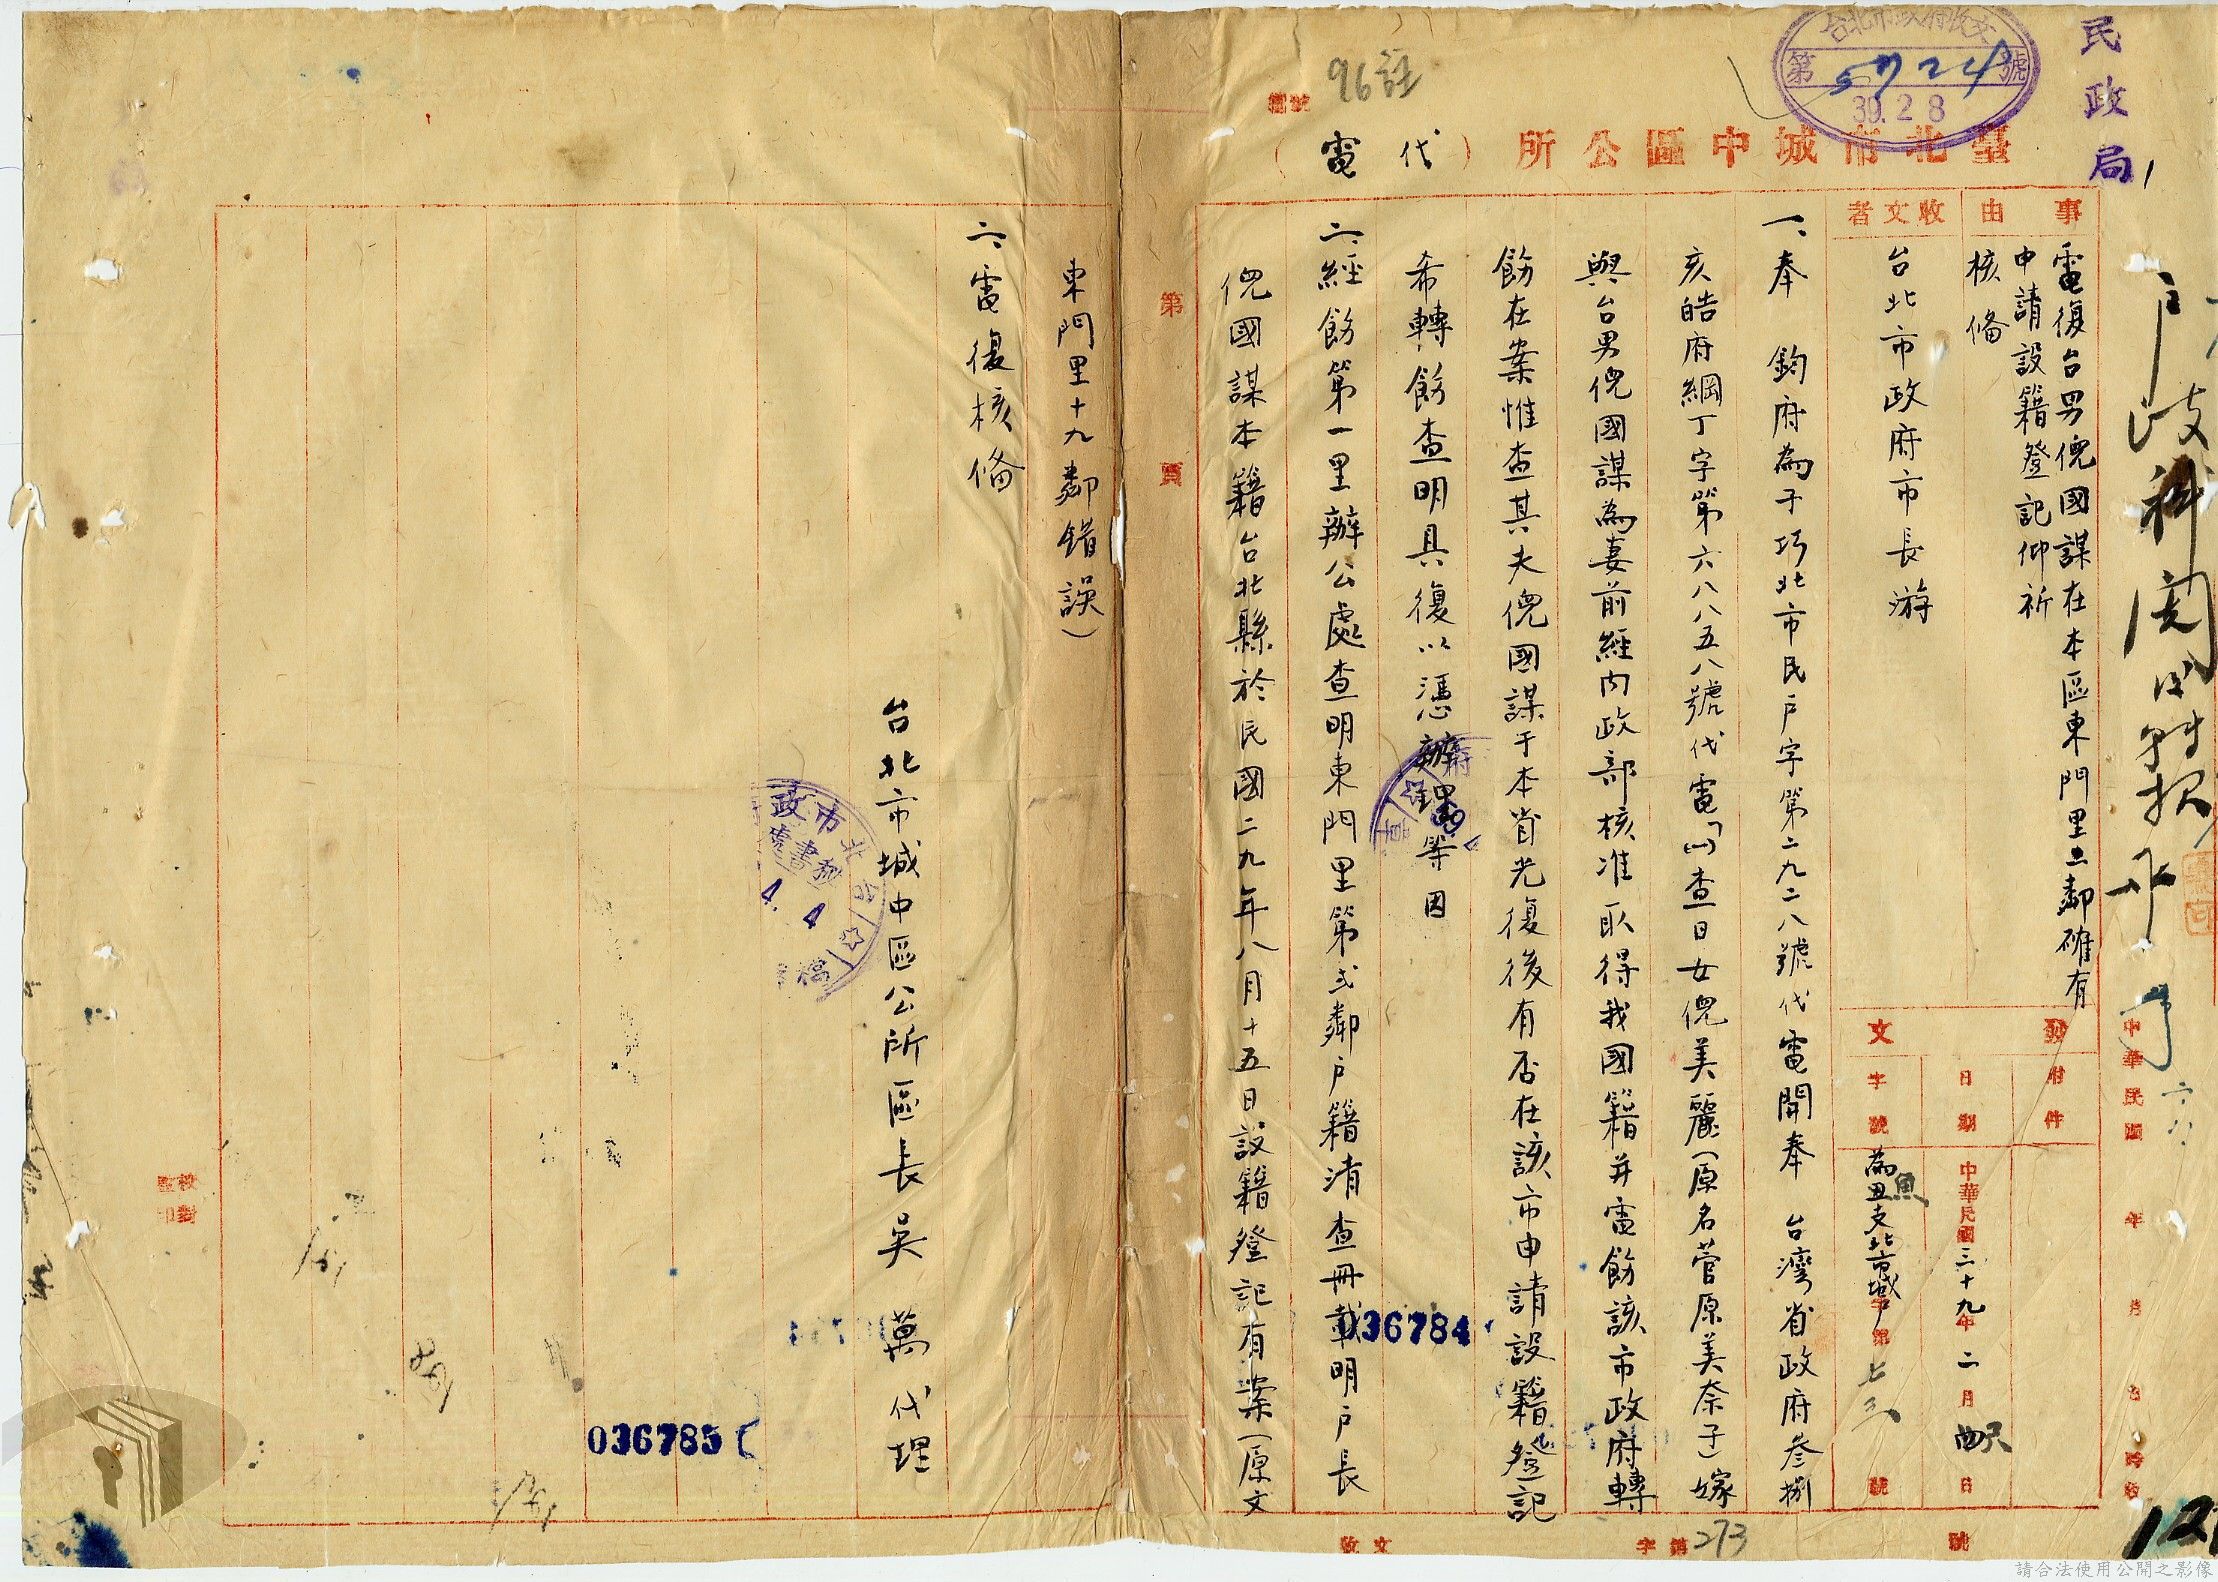 民政局
台北市政府收文
第5724號
39.2.8
96註
臺北市城中區公所（代電）
事由
電復台男倪國謀在本區東門里二鄰確有
申請設籍登記仰祈
核備
收文者
台北市政府市長游
發文
附件
日期
中華民國三十九年二月四日
字號
為丑支北市城戶字第七三號
一、奉　鈞府為子巧北市民戶字第二九二八號代電開奉　台灣省政府叁捌
亥皓府綱丁字第六八八五八號代電「(一)查日女倪美麗（原名菅原美奈子）嫁
與台男倪國謀為妻前經內政部核准取得我國籍并電飭該市政府轉
飭在案惟查其夫倪國謀于本省光復後有否在該市申請設籍登記
希轉飭查明具復以憑辦理」等因
二、經飭第一里辦公處查明東門里第弍鄰戶籍清查冊載明戶長
倪國謀本籍台北縣於民國二九年八月十五日設籍登記有案（原文
第
頁
東門里十九鄰錯誤）
六、電復核備
台北市城中區公所區長吳　萬代理
台北市政
秘書處
4. 4
036784
036785
校對
監印
中華民國　年　月　日　時收
收文　字第273號
請合法使用公開之影像